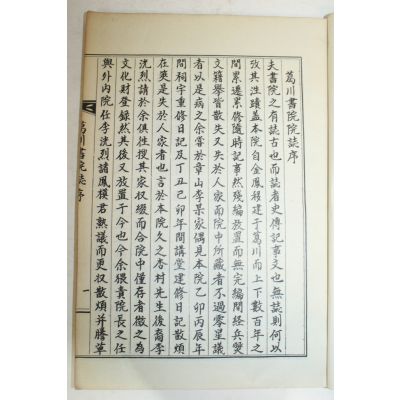 葛川書院院誌序
夫書院之有誌古也而誌者史傳記事文也無誌則何以
攷其往蹟盖本院自金鳳移建于葛川而上下數百年之
間累遷累修隨時記事然殘編放置而無完編間經兵燹
文籍擧皆散失又失於人家而院中所藏者不過零星議
者以是病之余嘗於章山李杲家偶見本院乙卯丙辰年
間祠宇重修日記及丁丑己卯年間講堂建修日記散煩
在是失於人家者也言於本院久之杏村先生後裔李
洸烈請於余俱徃搜其家収綴而合院中僅存者徵之為
文化財登錄然其後又放置于今也今余猥責院長之任
與外內院任李洸烈諸鳳模君熟議而更収散煩并謄草
葛川書院誌序
一